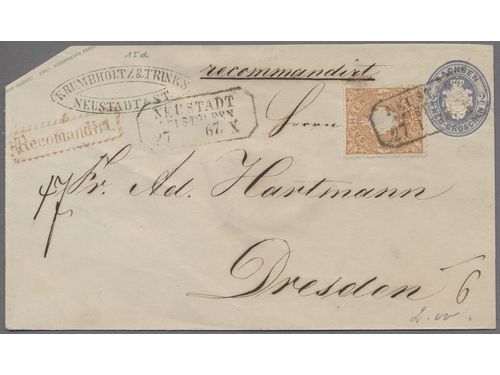 15d
KRUMBHOLTZ & TRINKS
NEUSTADT a/ST.
recommandirt
NEUSTADT
BEI STOLPEN
27 67. X
Recomandirt.
SACHSEN
Herrn
Fr. Ad. Hartmann
Dresden
6
2.00.